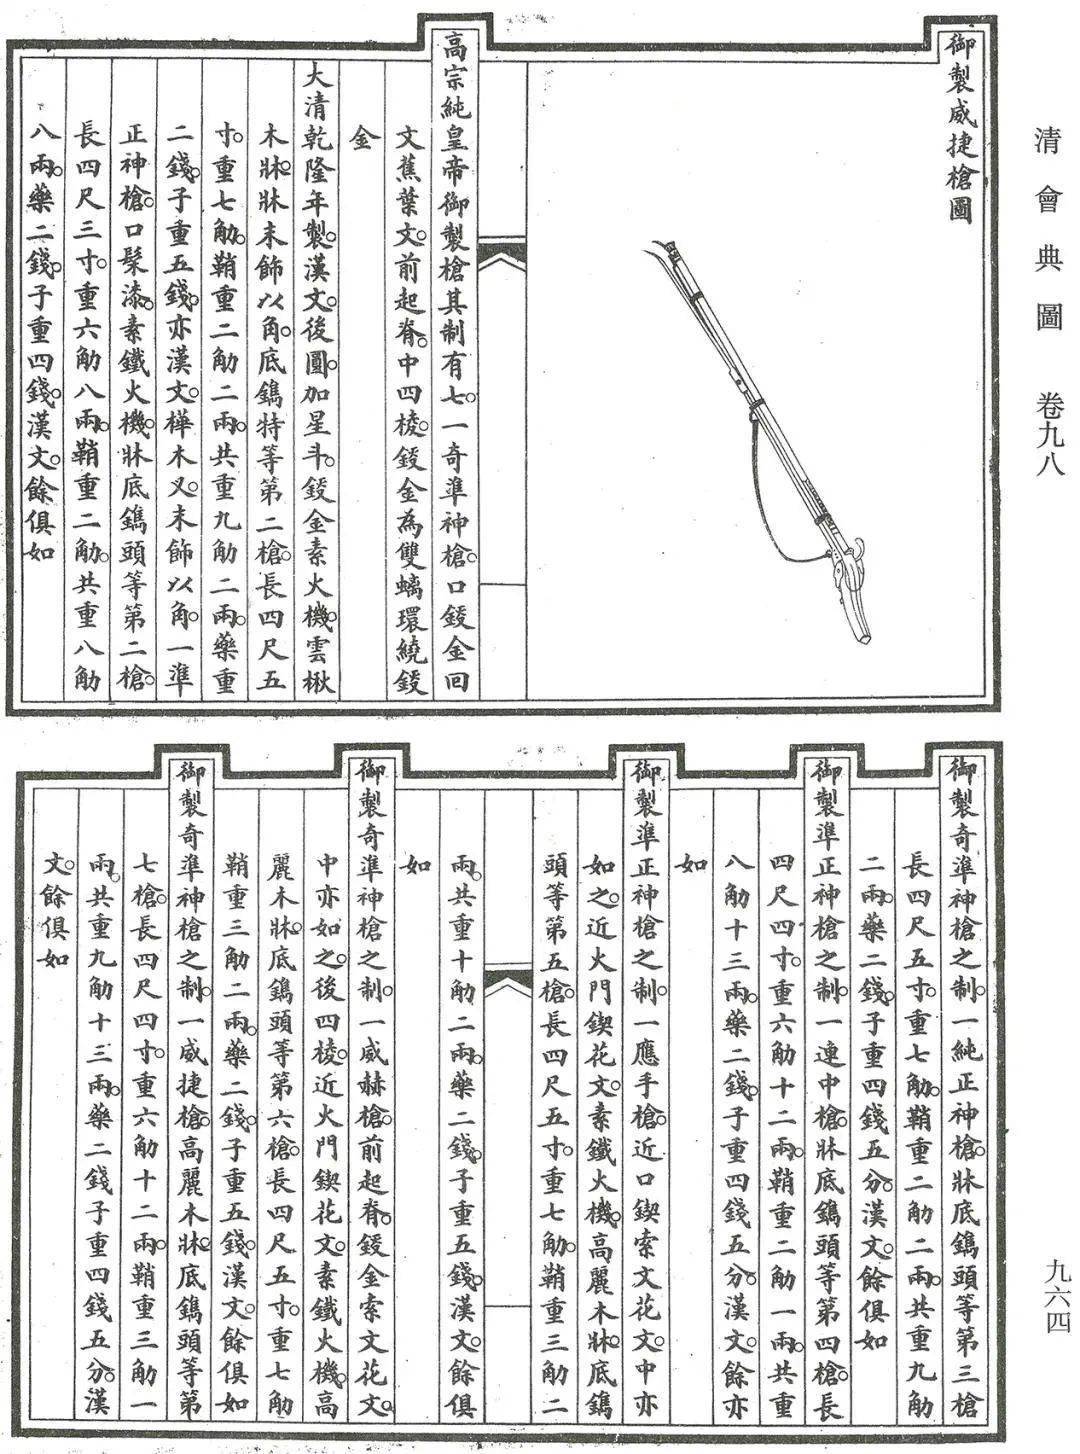 清會典圖 卷九八
九六四
御製威捷槍圖
高宗純皇帝御製槍其制有七一奇準神槍口鋄金回
文蕉葉文前起脊中四棱鋄金為雙螭環繞鋄
金
大清乾隆年製漢文後圓加星斗鋄金素火機雲楸
木牀牀末飾以角底鐫特等第二槍長四尺五
寸重七觔鞘重二觔二兩共重九觔二兩藥重
二錢子重五錢亦漢文樺木叉末飾以角一準
正神槍口髹漆素鐵火機牀底鐫頭等第二槍
長四尺三寸重六觔八兩鞘重二觔共重八觔
八兩藥二錢子重四錢漢文餘俱如
御製奇準神槍之制一純正神槍牀底鐫頭等第三槍
長四尺五寸重七觔鞘重二觔二兩共重九觔
二兩藥二錢子重四錢五分漢文餘俱如
御製準正神槍之制一連中槍牀底鐫頭等第四槍長
四尺四寸重六觔十二兩鞘重二觔一兩共重
八觔十三兩藥二錢子重四錢五分漢文餘亦
如
御製準正神槍之制一應手槍近口鍥索文花文中亦
如之近火門鍥花文素鐵火機高麗木牀底鐫
頭等第五槍長四尺五寸重七觔鞘重三觔二
兩共重十觔二兩藥二錢子重五錢漢文餘俱
如
御製奇準神槍之制一威赫槍前起脊鋄金索文花文
中亦如之後四棱近火門鍥花文素鐵火機高
麗木牀底鐫頭等第六槍長四尺五寸重七觔
鞘重三觔二兩藥二錢子重五錢漢文餘俱如
御製奇準神槍之制一威捷槍高麗木牀底鐫頭等第
七槍長四尺四寸重六觔十二兩鞘重三觔一
兩共重九觔十三兩藥二錢子重四錢五分漢
文餘俱如